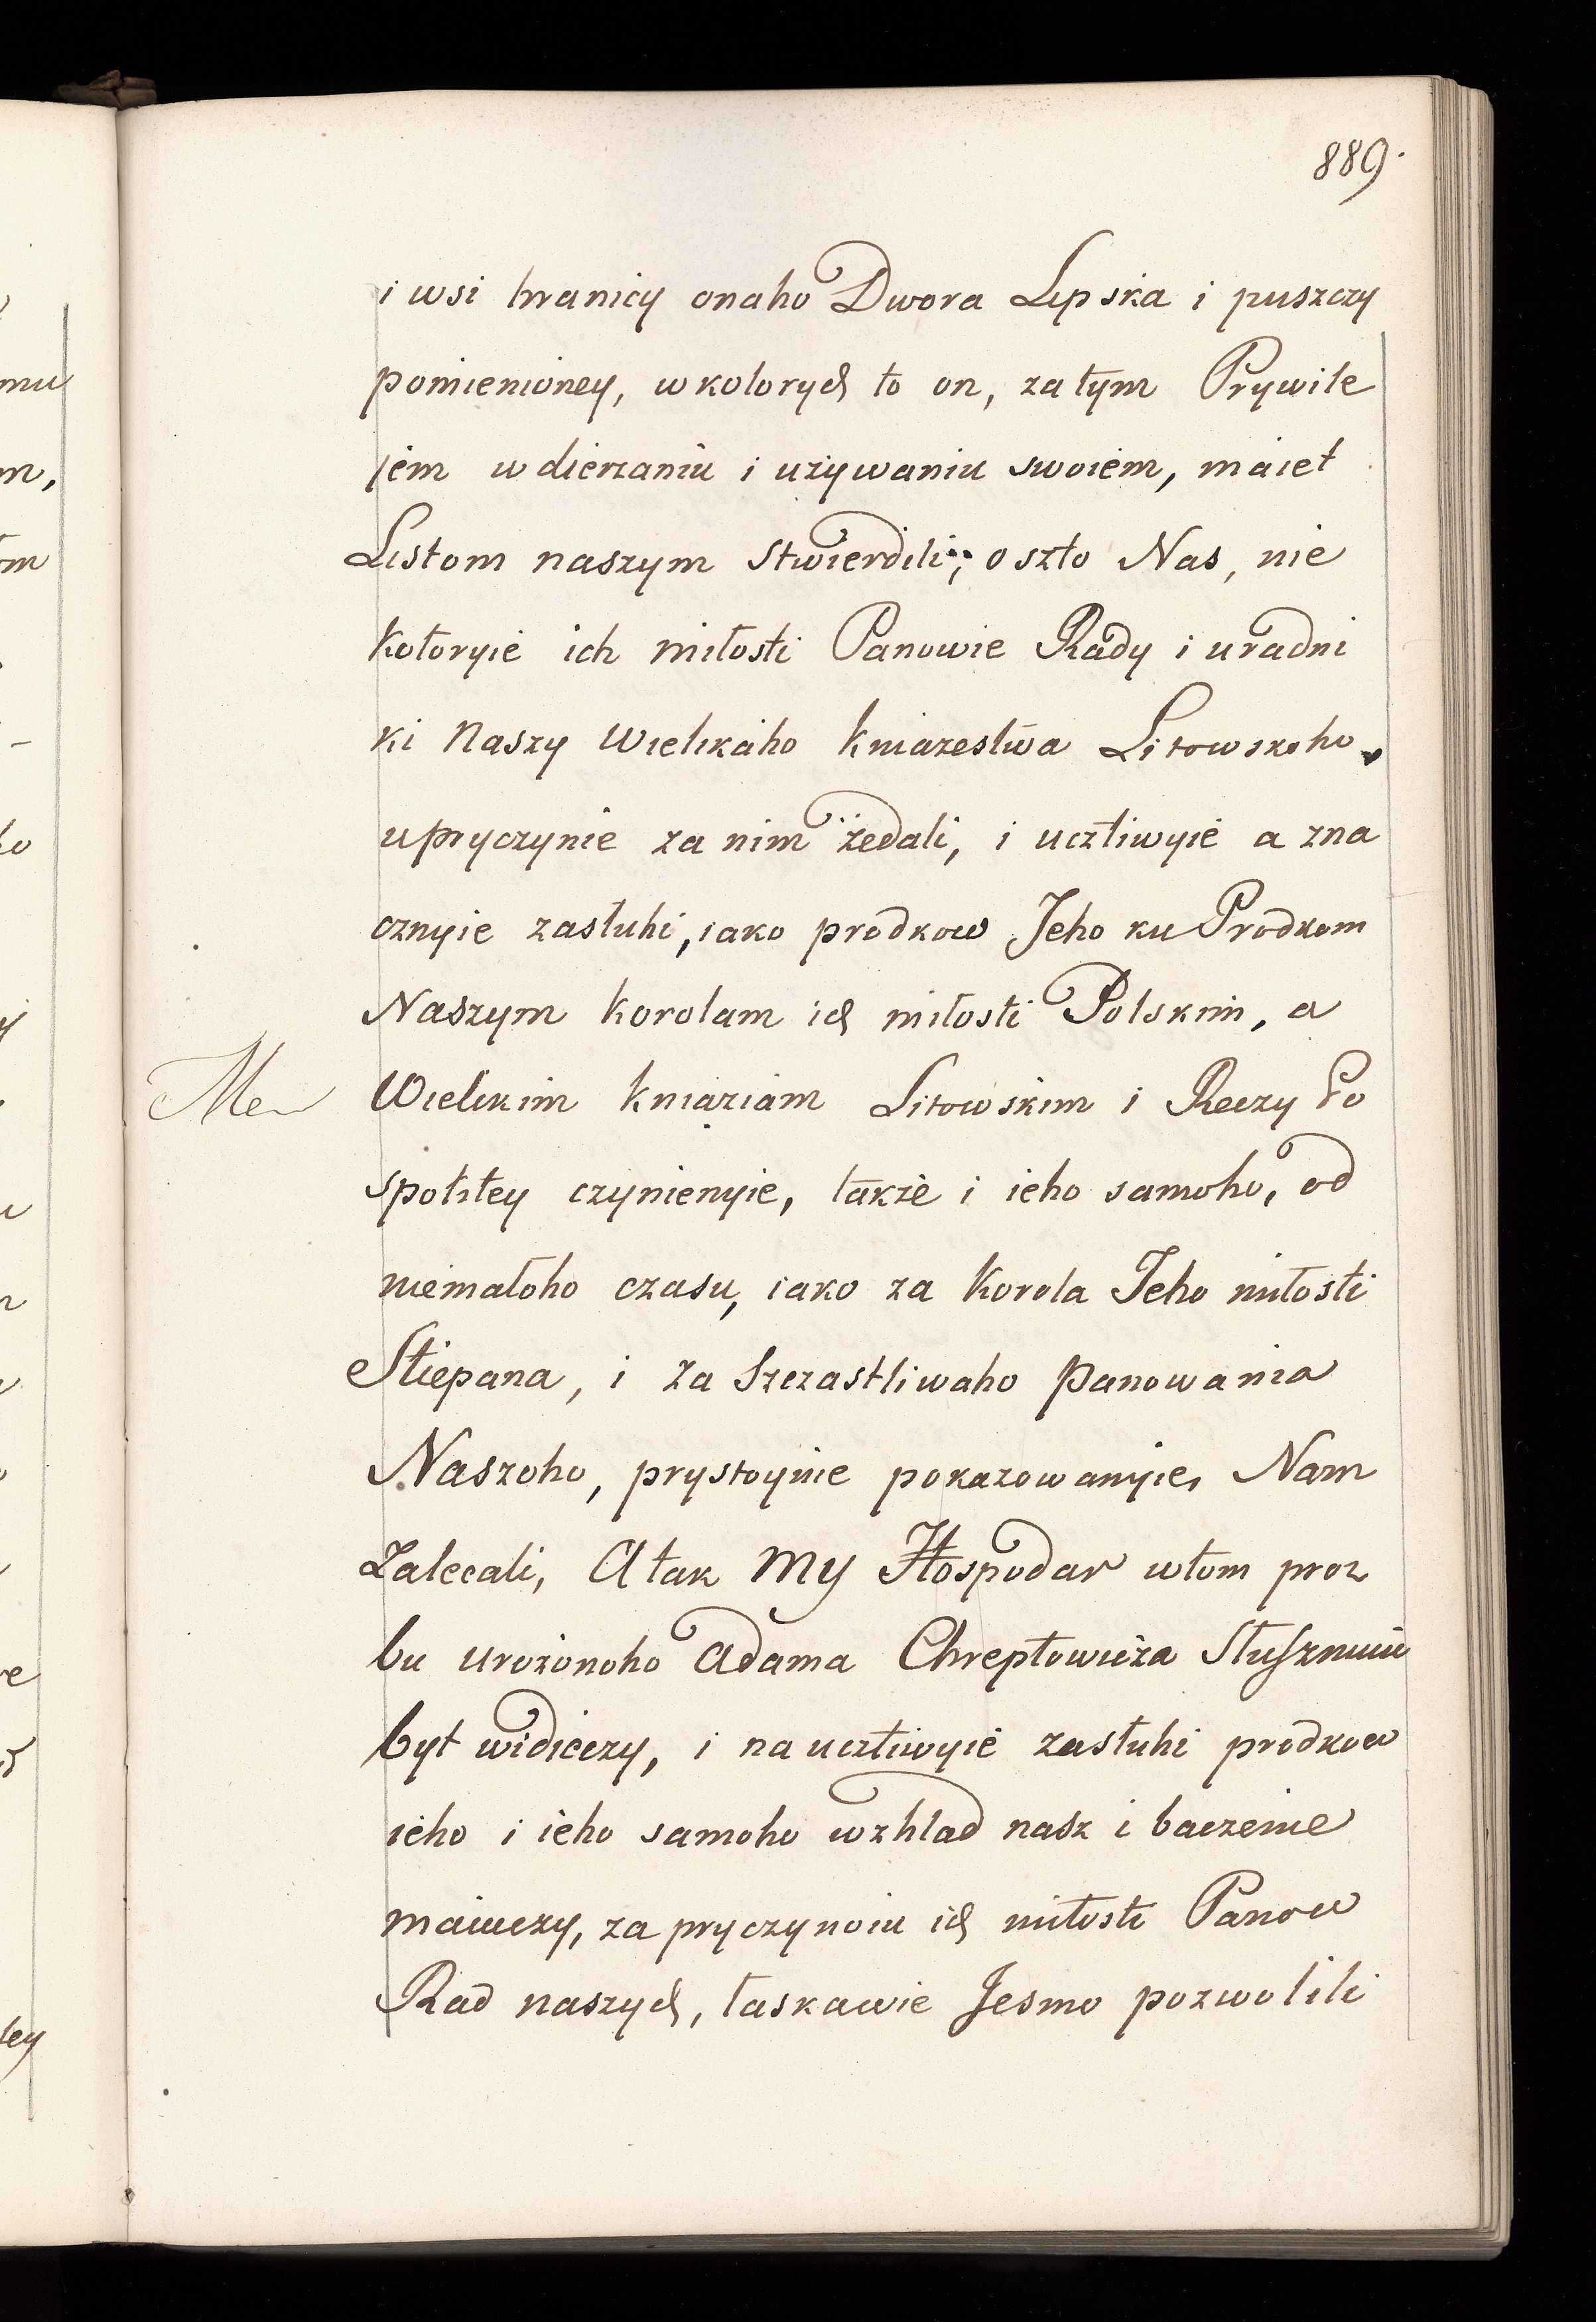 889.
i wsi hranicy onaho Dwora Lipska i puszczy
pomienioney, w kotorych to on, za tym Prywile
jem w dierżaniu i używaniu swoiem, maiet
Listom naszym stwierdili; o szto Nas, nie
kotoryie ich miłosti Panowie Rady i uradni
ki naszy Wielikaho kniażestwa Litowskoho,
u pryczynie za nim żedali, i ucztiwyie a zna
cznyie zasłuhi, iako prodkow Jeho ku Prodkom
Naszym korolam ich miłosti Polskim, a
Wielikim kniaziam Litowskim i Reczy Po
społitey czynienyie, także i ieho samoho, od
niemałoho czasu, iako za Korola Jeho miłosti
Stiepana, i za Szczastliwaho panowania
Naszoho, prystoynie pokazowanyie, Nam
Zalecali, A tak My Hospodar w tom proz
bu urożonoho Adama Chreptowicza Słusznuiu
być widieczy, i na ucztiwyie zasłuhi prodkow
ieho i ieho samoho wzhlad nasz i baczenie
maiuczy, za pryczynoiu ich miłosti Panow
Rad naszych, łaskawie Jesmo pozwolili